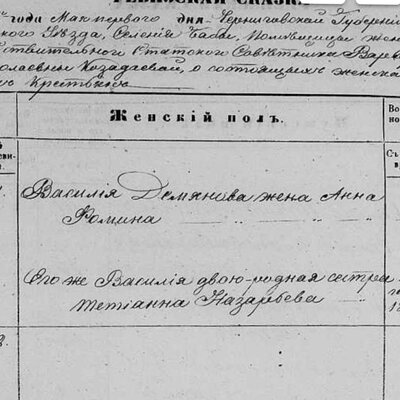 РЕВИЗСКАЯ СКАЗКА
года Мая первого дня Черниговской Губерніи
Уѣзда, Селенія Бабы, Помѣщицы жены
Статского Совѣтника Варвары
Козадаевой, о состоящихъ женска
Крестьянъ
Женскій полъ.
Василія Демянова жена Анна
Фомина
Его же Василія двою-родная сестра
Тетіанна Назарьева